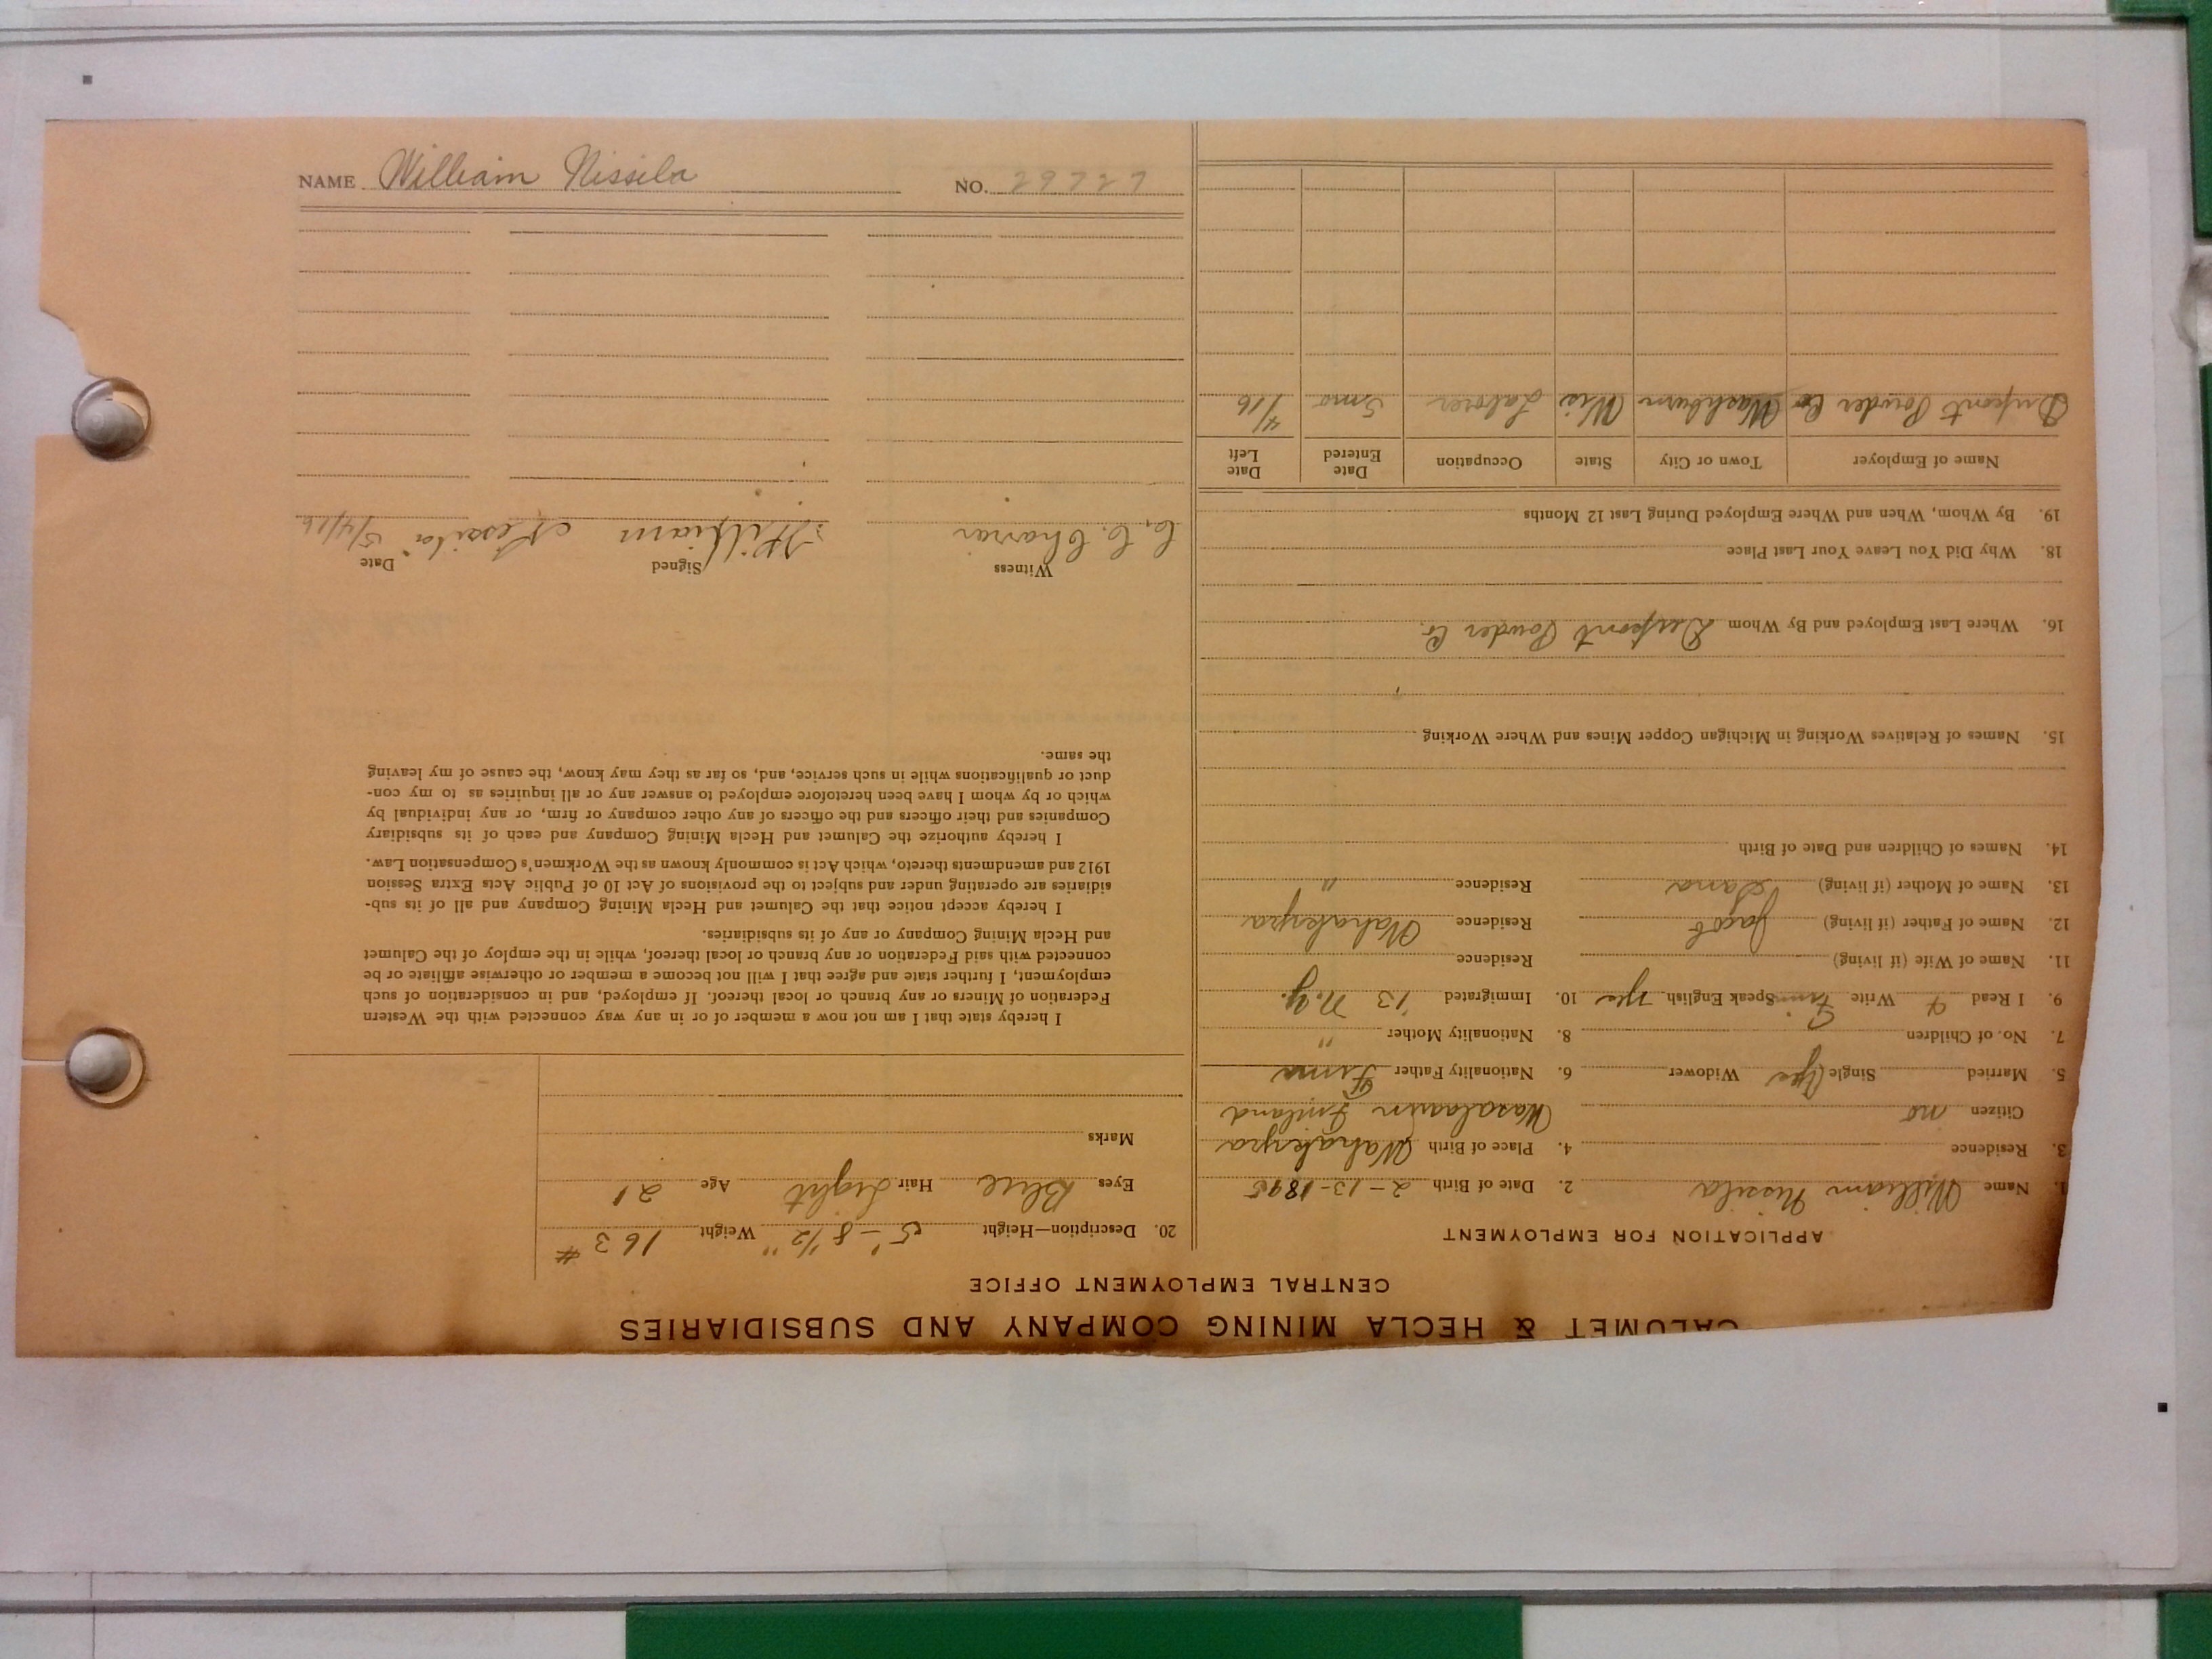 CALUMET & HECLA MINING COMPANY AND SUBSIDIARIES
CENTRAL EMPLOYMENT OFFICE
APPLICATION FOR EMPLOYMENT
1. Name William Nissila 2. Date of Birth 2-13-1895
3. Residence 4. Place of Birth
Citizen no Finland
5. Married Single Yes Widower 6. Nationality Father Finn
7. No. of Children 8. Nationality Mother "
9. I Read & Write Finn Speak English Yes 10. Immigrated '13 N.Y.
11. Name of Wife (if living) Residence
12. Name of Father (if living) Jacob Residence
13. Name of Mother (if living) Residence "
14. Names of Children and Date of Birth
15. Names of Relatives Working in Michigan Copper Mines and Where Working
16. Where Last Employed and By Whom Dupont Powder Co.
18. Why Did You Leave Your Last Place
19. By Whom, When and Where Employed During Last 12 Months
Name of Employer Town or City State Occupation Date Entered Date Left
Dupont Powder Co Washburn Wis Laborer 5mo 4/16
20. Description—Height 5'-8 1/2" Weight 163 #
Eyes Blue Hair Light Age 21
Marks
I hereby state that I am not now a member of or in any way connected with the Western
Federation of Miners or any branch or local thereof. If employed, and in consideration of such
employment, I further state and agree that I will not become a member or otherwise affiliate or be
connected with said Federation or any branch or local thereof, while in the employ of the Calumet
and Hecla Mining Company or any of its subsidiaries.
I hereby accept notice that the Calumet and Hecla Mining Company and all of its sub-
sidiaries are operating under and subject to the provisions of Act 10 of Public Acts Extra Session
1912 and amendments thereto, which Act is commonly known as the Workmen's Compensation Law.
I hereby authorize the Calumet and Hecla Mining Company and each of its subsidiary
Companies and their officers and the officers of any other company or firm, or any individual by
which or by whom I have been heretofore employed to answer any or all inquiries as to my con-
duct or qualifications while in such service, and, so far as they may know, the cause of my leaving
the same.
Witness Signed Date
C. C. William Nissila 5/4/16
NAME William Nissila NO. 29727